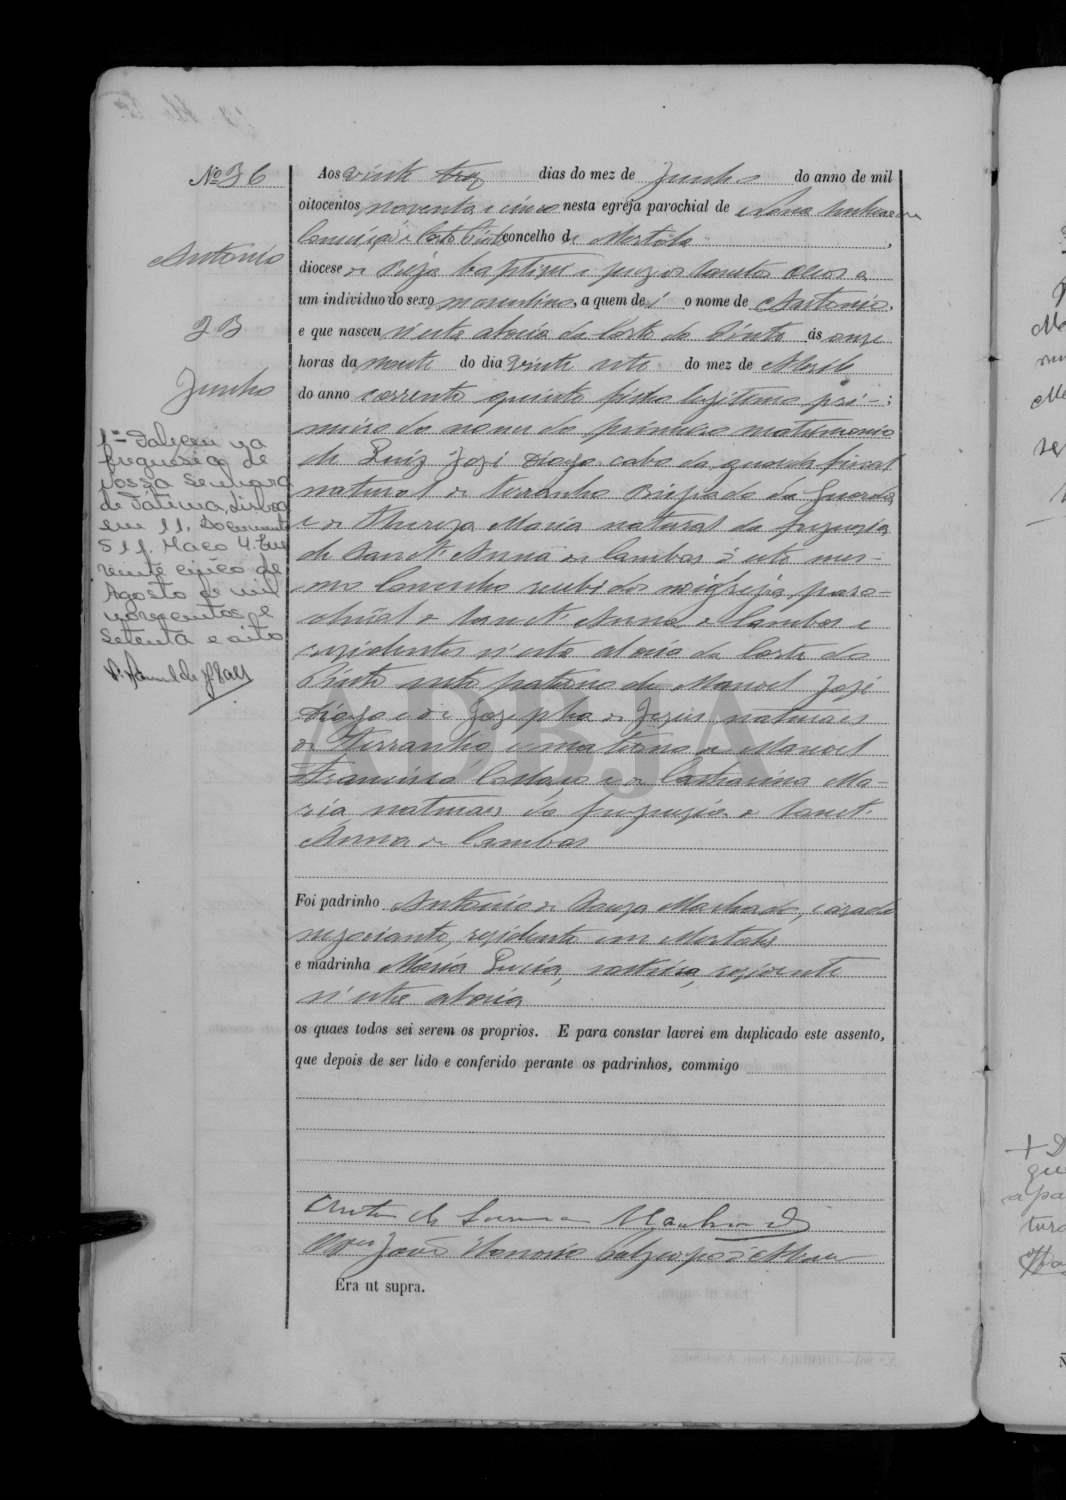 Nº 36
Antonio
23
Junho
1º Faleceu na
freguesia de
Nossa Senhora
de Fátima, Lisboa
em 11. Documento
511. Maço 4. Em
vinte cinco de
Agosto de mil
novecentos e
setenta e oito
Aos vinte trez dias do mez de Junho do anno de mil
oitocentos noventa e cinco nesta egreja parochial de
concelho de Mertola,
diocese de Beja baptizei e puz os Sanctos Oleos a
um individuo do sexo masculino, a quem dei o nome de Antonio,
e que nasceu n'esta aldeia da Corte do Pinto ás onze
horas da noute do dia vinte oito do mez de Abril
do anno corrente quinto filho legitimo pri-
meiro do nome do primeiro matrimonio
de Luiz Jozé Diogo cabo da guarda fiscal
natural de Terranho Bispado da Guarda
e de Thereza Maria natural da freguezia
de Sanct'Anna de Cambas d'este mes-
mo Concelho recebidos na igreja paro-
chial de Sanct'Anna de Cambas e
rezidentes n'esta aldeia da Corte do
Pinto neto paterno de Manoel Jozé
Diogo e de Jozepha de Jezus naturaes
de Terranho e materno de Manoel
Francisco e de Catharina Ma-
ria naturaes da freguezia de Sanct'
Anna de Cambas
Foi padrinho Antonio de Souza Machado, cazado
negociante, rezidente em Mertola
e madrinha Maria Luiza, solteira, rezidente
n'esta aldeia
os quaes todos sei serem os proprios. E para constar lavrei em duplicado este assento,
que depois de ser lido e conferido perante os padrinhos, commigo
Antonio de Souza Machado
João
Era ut supra.
ADBJA